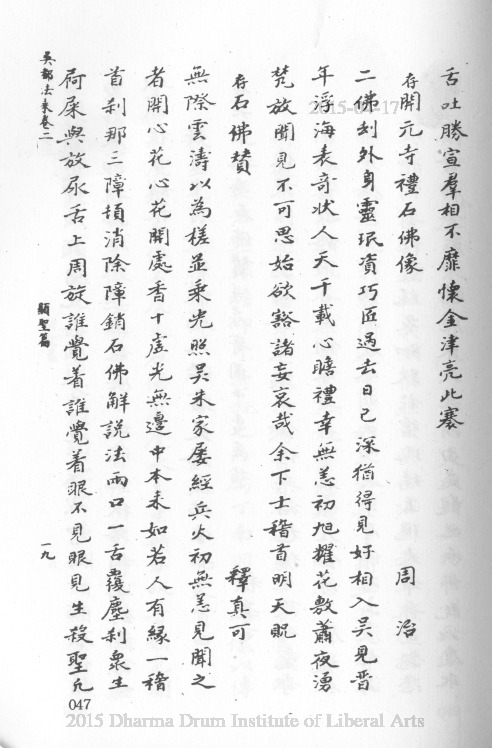 舌吐勝宣羣相不靡懷金津亮此褰
存開元寺禮石佛像 周治
二佛刹外身靈珉資巧匠過去日已深猶得見好相入吳見晋
年浮海表奇狀人天千載心瞻禮幸無恙初旭耀花敷蕭夜湧
梵放開見不可思始欲豁諸妄哀哉余下士稽首明天貺
存石佛贊 釋真可
無際雲濤以為槎並乘光照吳朱家屡經兵火初無恙見聞之
者開心花心花開處香十虛光無邊中本来如若人有緣一稽
首刹那三障頓消除障銷石佛解説法兩口一舌覆塵刹衆生
屙屎與放尿舌上周旋誰覺着誰覺着眼不見眼見生殺聖凡
吳都法乘卷二
顯聖篇
一九
047
2015-04-17
2015 Dharma Drum Institute of Liberal Arts